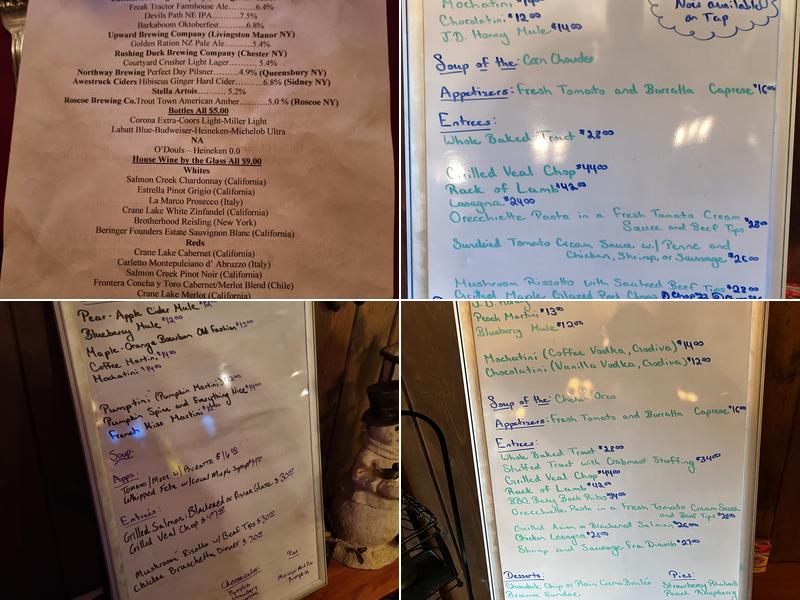 Freak Tractor Farmhouse Ale..........6.4%
Devils Path NE IPA..........7.5%
Barkaboom Oktoberfest..........6.8%
Upward Brewing Company (Livingston Manor NY)
Golden Ration NZ Pale Ale......5.4%
Rushing Duck Brewing Company (Chester NY)
Courtyard Crusher Light Lager...... 5.4%
Northway Brewing Perfect Day Pilsner..........4.9% (Queensbury NY)
Awestruck Ciders Hibiscus Ginger Hard Cider..........6.8% (Sidney NY)
Stella Artois.......... 5.2%
Roscoe Brewing Co.Trout Town American Amber..........5.0 % (Roscoe NY)
Bottles All $5.00
Corona Extra-Coors Light-Miller Light
Labatt Blue-Budweiser-Heineken-Michelob Ultra
NA
O'Douls – Heineken 0.0
House Wine by the Glass All $9.00
Whites
Salmon Creek Chardonnay (California)
Estrella Pinot Grigio (California)
La Marco Prosecco (Italy)
Crane Lake White Zinfandel (California)
Brotherhood Reisling (New York)
Beringer Founders Estate Sauvignon Blanc (California)
Reds
Crane Lake Cabernet (California)
Carletto Montepulciano d' Abruzzo (Italy)
Salmon Creek Pinot Noir (California)
Frontera Concha y Toro Cabernet/Merlot Blend (Chile)
Crane Lake Merlot (California)
Mochatini $14
Chocolatini $12.00
J.D. Honey Mule $14.00
Now available
on Tap
Soup of the: Corn Chowder
Appetizers: Fresh Tomato and Burratta Caprese $16
Entrees:
Whole Baked Trout $28.00
Grilled Veal Chop $44.00
Rack of Lamb $42.00
Lasagna $24.00
Orecchiette Pasta in a Fresh Tomato Cream
Sauce and Beef Tips $28
Sundried Tomato Cream Sauce w/ Penne and
Chicken, Shrimp, or Sausage $26.00
Mushroom Rissotto with Sauteed Beef Tips $28.00
Grilled Maple Glazed Pork Chops
Pear-Apple Cider Mule $12
Blueberry Mule $12.00
Maple-Orange Bourbon Old Fashion $13.00
Coffee Martini $14.00
Mochatini $14.00
Pumptini (Pumpkin Martini) $12.00
Pumpkin Spice and Everything Nice $14.00
French Kiss Martini
Soup:
Apps:
Tomato/Mozz w/ Buratta $16.00
Whipped Feta w/ Local Maple Syrup
Entrées:
Grilled Salmon: Blackened or Asian Glaze $30.00
Grilled Veal Chop $47.00
Mushroom Risotto w/ Beef Tips $30.00
Chicken Bruschetta Dinner $30
Cheesecake:
Pumpkin
Pies
Pumpkin
Peach Martini $13.00
Blueberry Mule $12.00
Mochatini (Coffee Vodka, Godiva) $14.00
Chocolatini (Vanilla Vodka, Godiva) $12.00
Soup of the: Orzo
Appetizers: Fresh Tomato and Burratta Caprese $16
Entrees:
Whole Baked Trout $28.00
Stuffed Trout with Crabmeat Stuffing $34.00
Grilled Veal Chop $44.00
Rack of Lamb $42.00
BBQ Baby Back Ribs
Orecchiette Pasta in a Fresh Tomato Cream Sauce
and Beef Tips $28.00
Grilled Asian or Blackened Salmon $26.00
Chicken Lasagna $23.00
Shrimp and Sausage Fra Diavolo $27.00
Desserts: Pies:
Chocolate Chip or Plain Creme Brulée Strawberry Rhubarb
Brownie Sundae Peach Raspberry